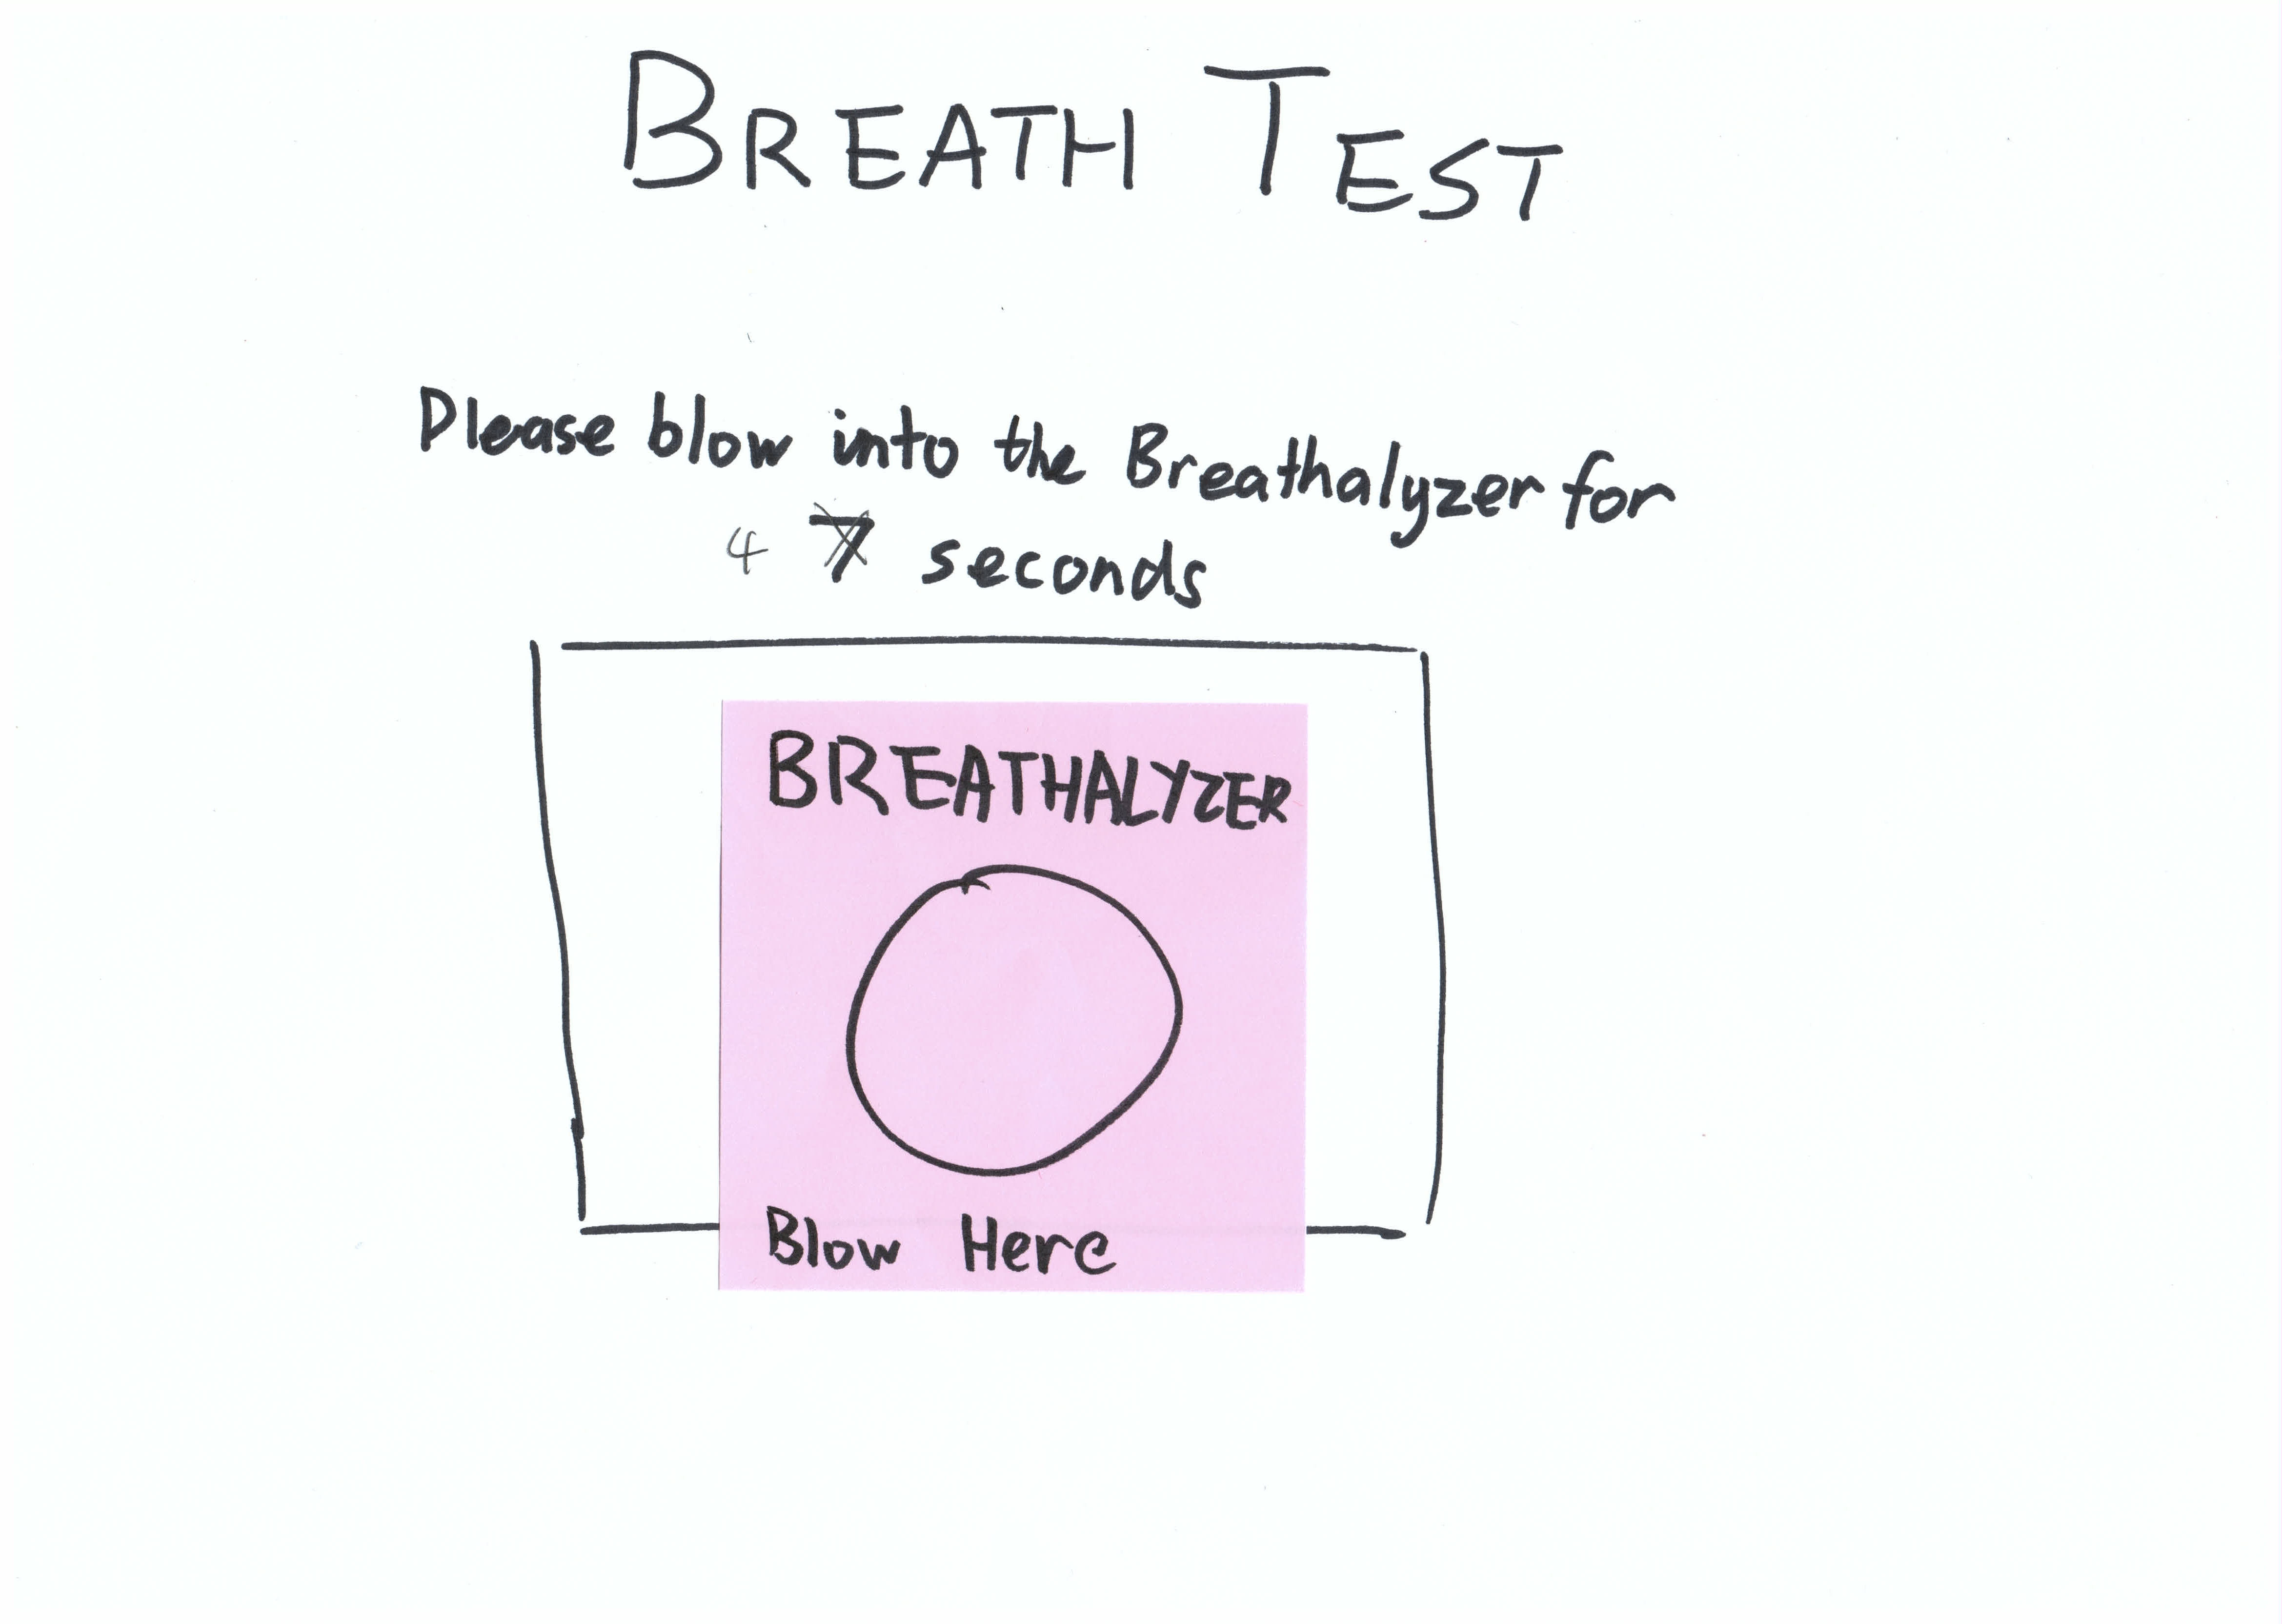 BREATH TEST
Please blow into the Breathalyzer for
4 7 seconds
BREATHALYZER
Blow Here